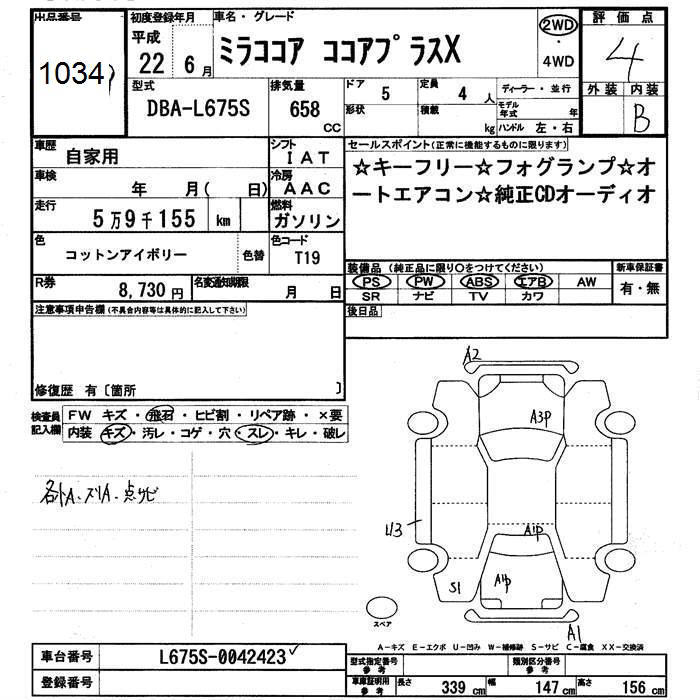 出品番号 初度登録年月 車名・グレード 2WD 評価点
1034 平成 22 6月 ミラココア ココアプラスX 4WD 4
型式 排気量 ドア 5 定員 4人 ディーラー・並行 外装 内装
DBA-L675S 658 CC 形状 積載 kg モデル年式 年 B
ハンドル 左・右
車歴 自家用 シフト IAT セールスポイント(正常に機能するものに限ります)
車検 年 月( 日) 冷房 AAC ☆キーフリー☆フォグランプ☆オ
走行 5万9千155 km 燃料 ガソリン ートエアコン☆純正CDオーディオ
色 コットンアイボリー 色替 色コード T19
装備品 (純正品に限り○をつけてください) 新車保証書
R券 8,730円 名変通知期限 月 日 PS PW ABS エアB AW 有・無
SR ナビ TV カワ
注意事項申告欄(不具合内容等は具体的に記入して下さい) 後日品
修復歴 有〔箇所 〕
検査員記入欄 FW キズ・飛石・ヒビ割・リペア跡・×要
内装 キズ・汚レ・コゲ・穴・スレ・キレ・破レ
A2
A3P
各トA・スリA・点サビ
U3
A1P
S1
A1P
スペア
A1
A-キズ E-エクボ U-凹み W-補修跡 S-サビ C-腐食 XX-交換済
車台番号 L675S-0042423 型式指定番号 参考 類別区分番号 参考
登録番号 車庫証明用 参考 長さ 339cm 幅 147cm 高さ 156cm